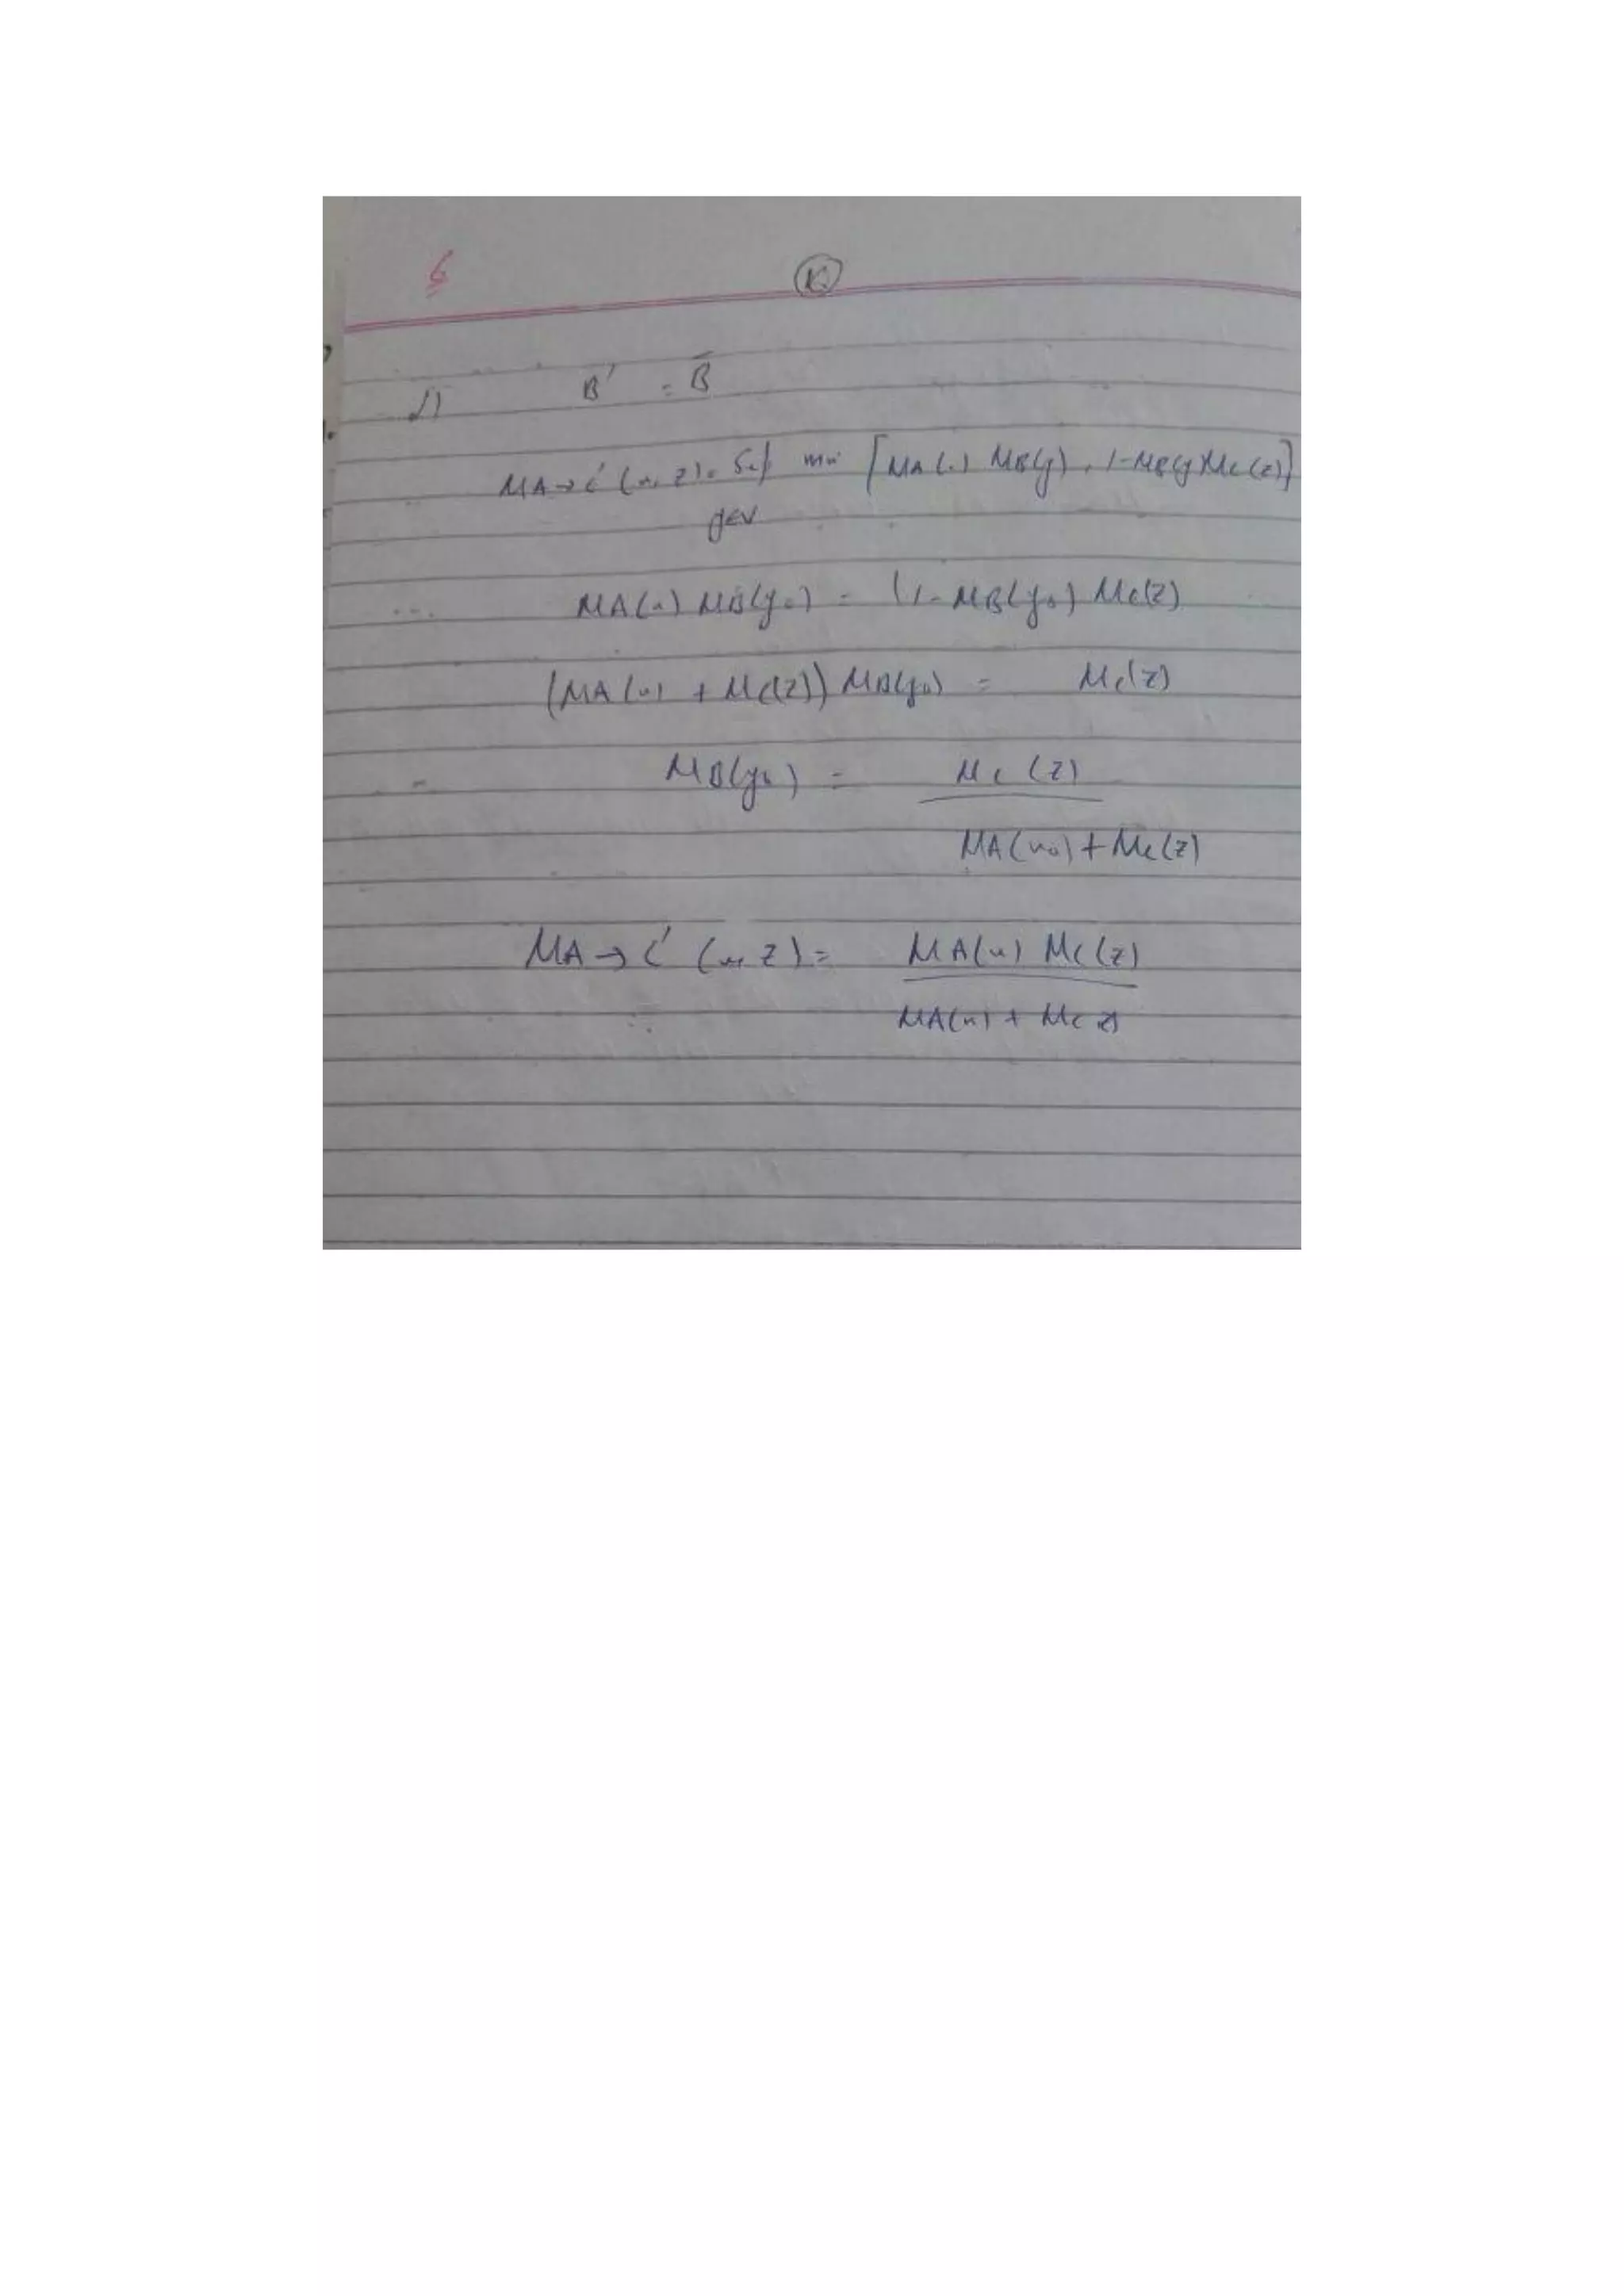 6
d) B' = B̄
μA→C' (x, z) = Sup min [μA(x) μB(y), 1-μB(y) μC(z)]
y∈V
μA(x) μB(y0) = (1-μB(y0) μC(z)
(μA(x) + μC(z)) μB(y0) = μC(z)
μB(y0) = μC (z)
μA(x0) + μC(z)
μA→C' (x, z) = μA(x) μC(z)
μA(x) + μC z)